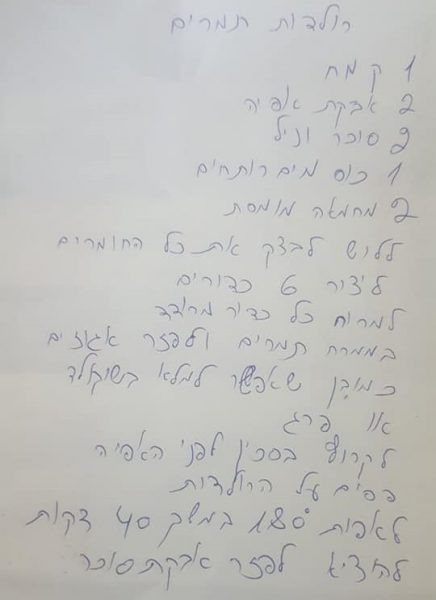 רולדות תמרים
1 קמח
2 אבקת אפיה
2 סוכר וניל
1 כוס מים רותחים
2 מחמאה מומסת
ללוש לבצק את כל החומרים
ליצור 6 כדורים
למרוח כל כדור מרודד
בממרח תמרים ולפזר אגוזים
כמובן שאפשר למלא בשוקולד
או פרג
לקרוץ בסכין לפני האפיה
פסים על הרולדות
לאפות 180° במשך 40 דקות
להוציא לפזר אבקת סוכר